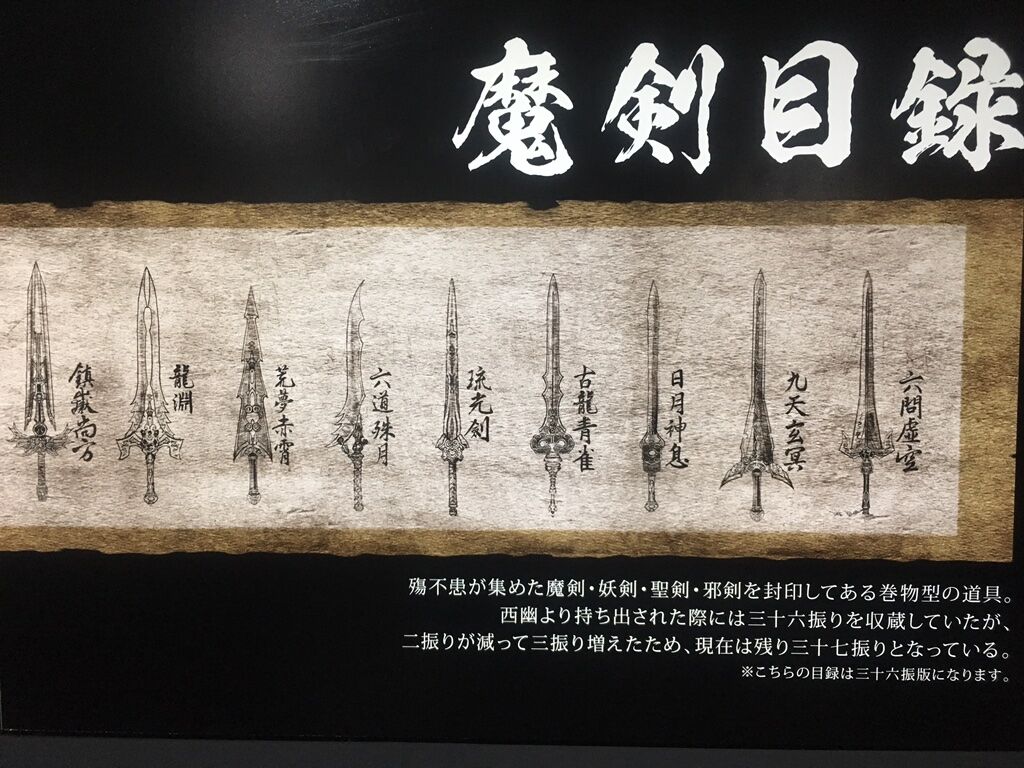 魔剣目録
六問虚空
九天玄冥
日月神息
古龍青雀
琉光剣
六道殊月
荒夢赤霄
龍淵
鎮嶽尚方
殤不患が集めた魔剣・妖剣・聖剣・邪剣を封印してある巻物型の道具。
西幽より持ち出された際には三十六振りを収蔵していたが、
二振りが減って三振り増えたため、現在は残り三十七振りとなっている。
※こちらの目録は三十六振版になります。